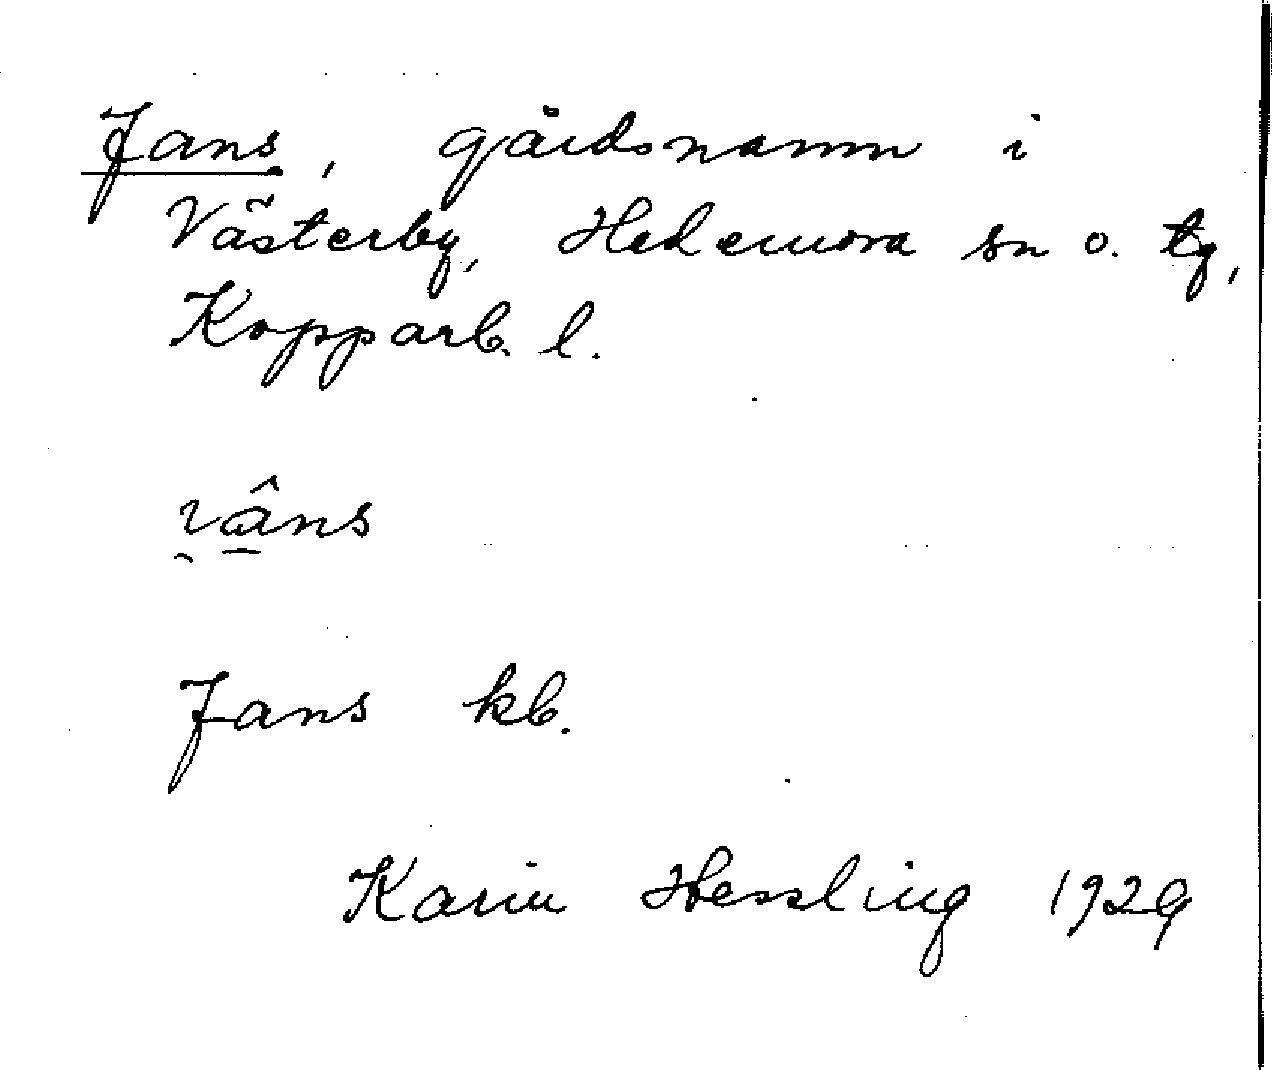 Jans, gårdsnamn i
Västerby, Hedemora sn o. tg,
Kopparb. l.
Jans kb.
Karin Hessling 1929